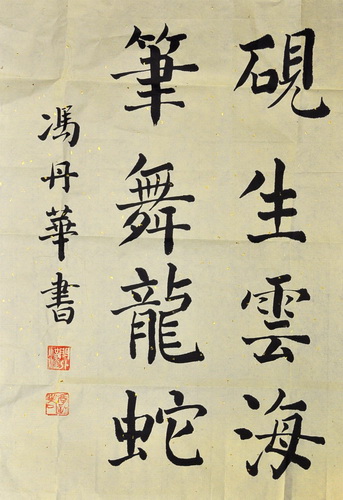 硯生雲海
筆舞龍蛇
馮丹華書